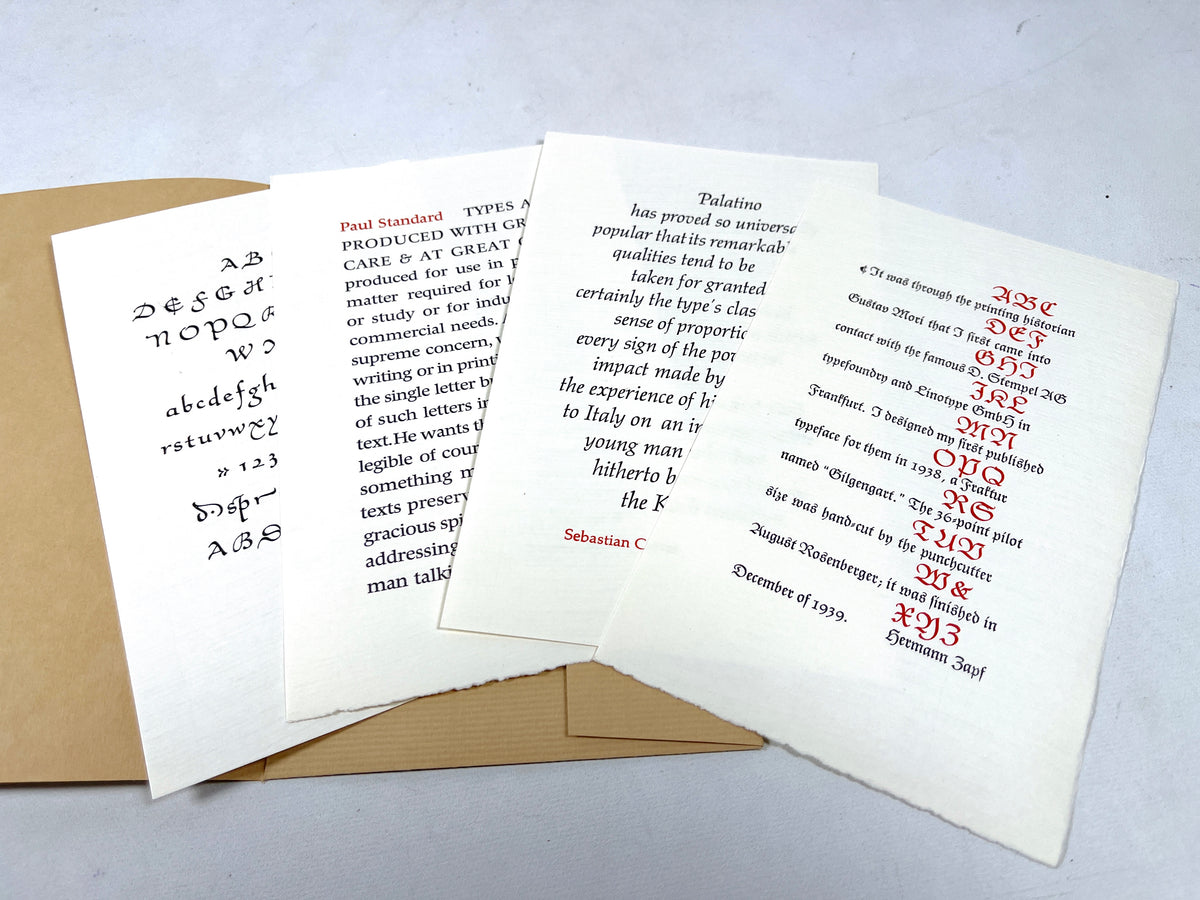 AB
DEFGH
NOPQ
W
abcdefgh
rstuvwxyz
» 123
ABS
Paul Standard TYPES
PRODUCED WITH
CARE & AT GREAT
produced for use in
matter required for
or study or for
commercial needs.
supreme concern,
writing or in
the single letter
of such letters
text.He wants
legible of
something
texts
gracious
addressing
man
Palatino
has proved so
popular that its
qualities tend to be
taken for granted
certainly the type's
sense of
every sign of the
impact made by
the experience of
to Italy on an
young man
hitherto
the
Sebastian
¶ It was through the printing historian
ABC
Gustav Mori that I first came into
DEF
contact with the famous D. Stempel AG
GHI
typefoundry and Linotype GmbH in
JKL
Frankfurt. I designed my first published
MN
typeface for them in 1938, a Fraktur
OPQ
named “Gilgengart.” The 36-point pilot
RS
size was hand-cut by the punchcutter
TUV
August Rosenberger; it was finished in
W&
December of 1939.
XYZ
Hermann Zapf